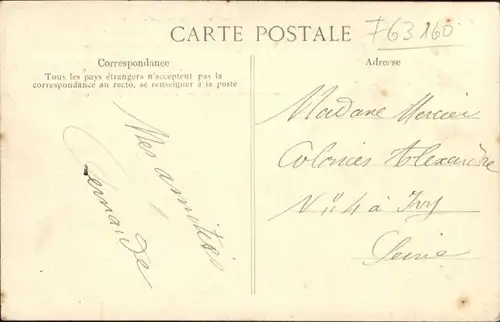 CARTE POSTALE
F63160
Correspondance
Tous les pays étrangers n'acceptent pas la
correspondance au recto, se renseigner à la poste
Mes amitiés
Bernarde
Adresse
Madame Mercier
Colonies Alexandre
N: 4 à Ivry
Seine